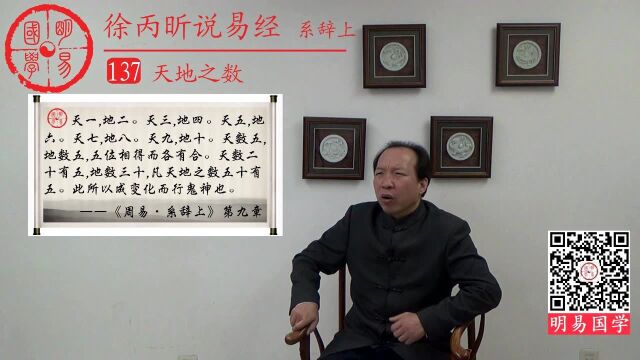 明易國學
徐丙昕说易经 系辞上
137 天地之数
天一,地二。天三,地四。天五,地
六。天七,地八。天九,地十。天數五,
地數五,五位相得而各有合。天數二
十有五,地數三十,凡天地之數五十有
五。此所以成变化而行鬼神也。
——《周易·系辞上》第九章
明易国学